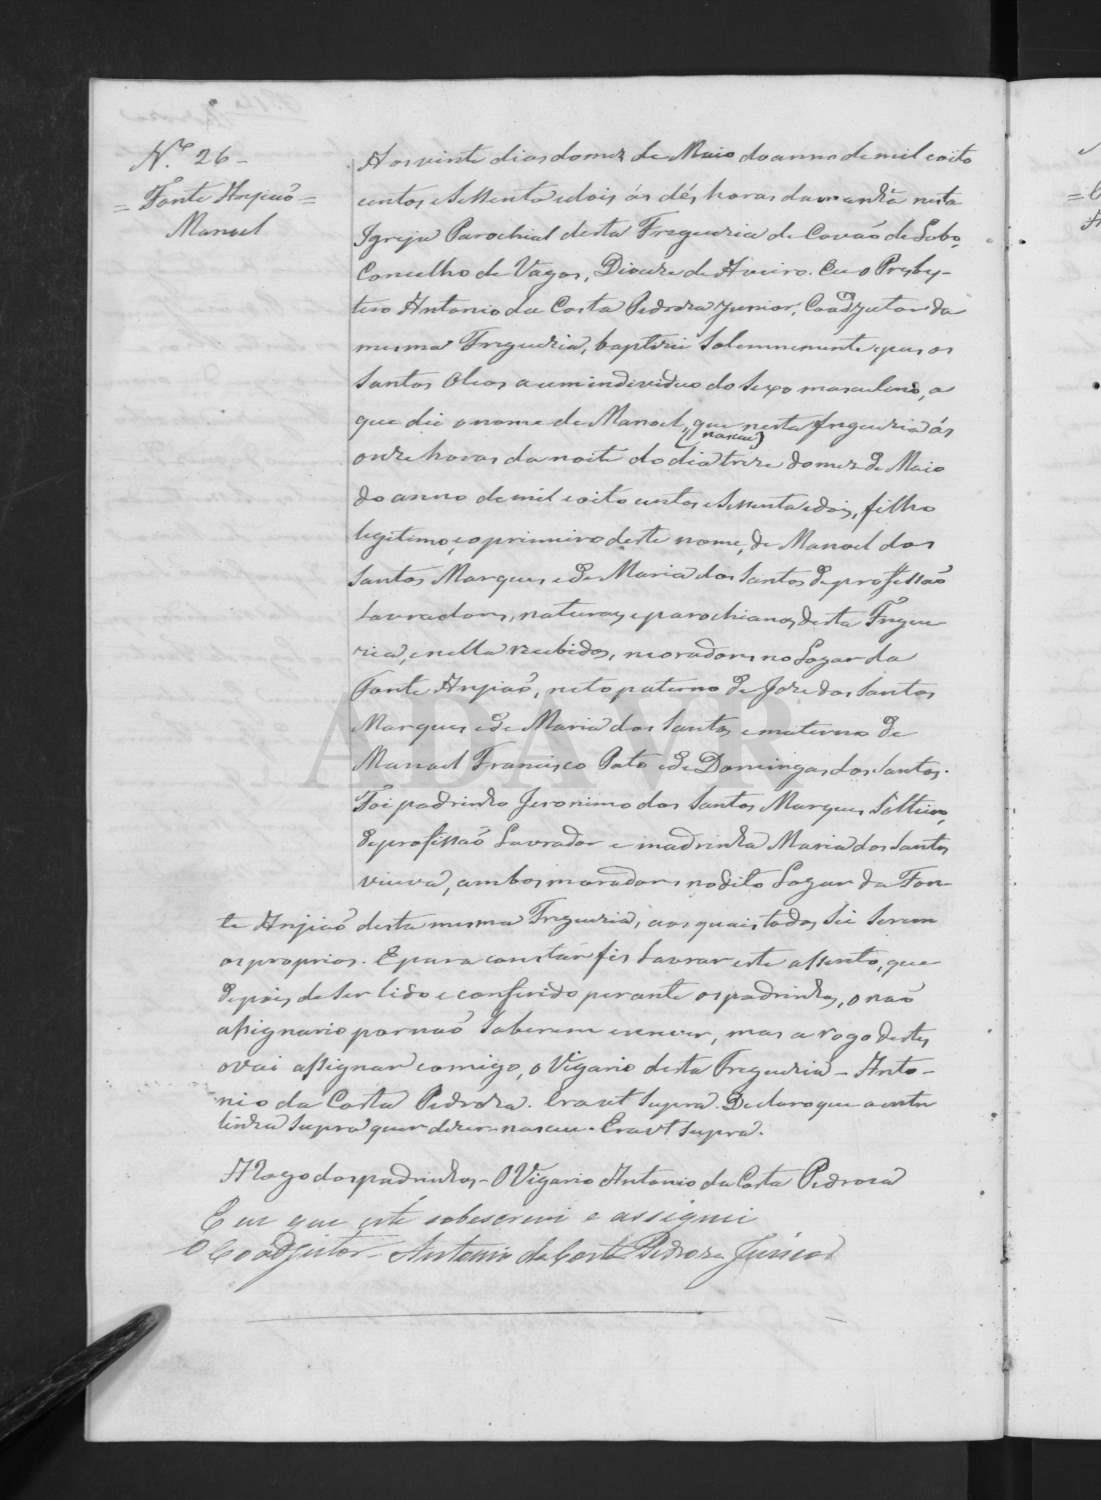 N.º 26 -
= Fonte Anjiaõ =
Manoel
Aos vinte dias do mez de Maio do anno de mil e oito
centos e Sessenta e dois ás dés horas da manhã nesta
Igreja Parochial desta Freguezia de Covaõ do Lobo,
Concelho de Vagos, Diocese de Aveiro. Eu o Presby-
tero Antonio da Costa Pedroza Junior, Coadjutor da
mesma Freguezia, baptizei Solemnemente e puz os
Santos Oleos a um individuo do Sexo masculino, a
que dei o nome de Manoel, que nesta freguezia ás
(nasceu)
onze horas da noite do dia treze do mez de Maio
do anno de mil e oito centos e Sessenta e dois, filho
legitimo, e o primeiro deste nome, de Manoel dos
Santos Marques e de Maria dos Santos de profissaõ
Lavradores, naturaes e parochianos desta Fregue
zia, e nella recebidos, moradores no Logar da
Fonte Anjiaõ, neto paterno de Joze dos Santos
Marques e de Maria dos Santos e materno de
Manoel Francisco Pato e de Domingas dos Santos.
Foi padrinho Jeronimo dos Santos Marques Solteiro,
de profissaõ Lavrador e madrinha Maria dos Santos
viuva, ambos moradores no dito Logar da Fon-
te Anjiaõ desta mesma Freguezia, aos quais todos Sei Serem
os proprios. E para constar fis Lavrar este assento, que
depois de Ser lido e conferido perante os padrinhos, o naõ
assignario por naõ Saberem escrever, mas a rogo destes
o vai assignar comigo, o Vigario desta Freguezia - Anto-
nio da Costa Pedroza. Era ut Supra. Declaro que a entre
linha Supra quer dizer - nasceu. Era ut Supra.
A Rogo dos padrinhos - O Vigario Antonio da Costa Pedroza
E eu que este sobescrevi e assignei
O Coadjutor - Antonio da Costa Pedroza Junior
ADAVR